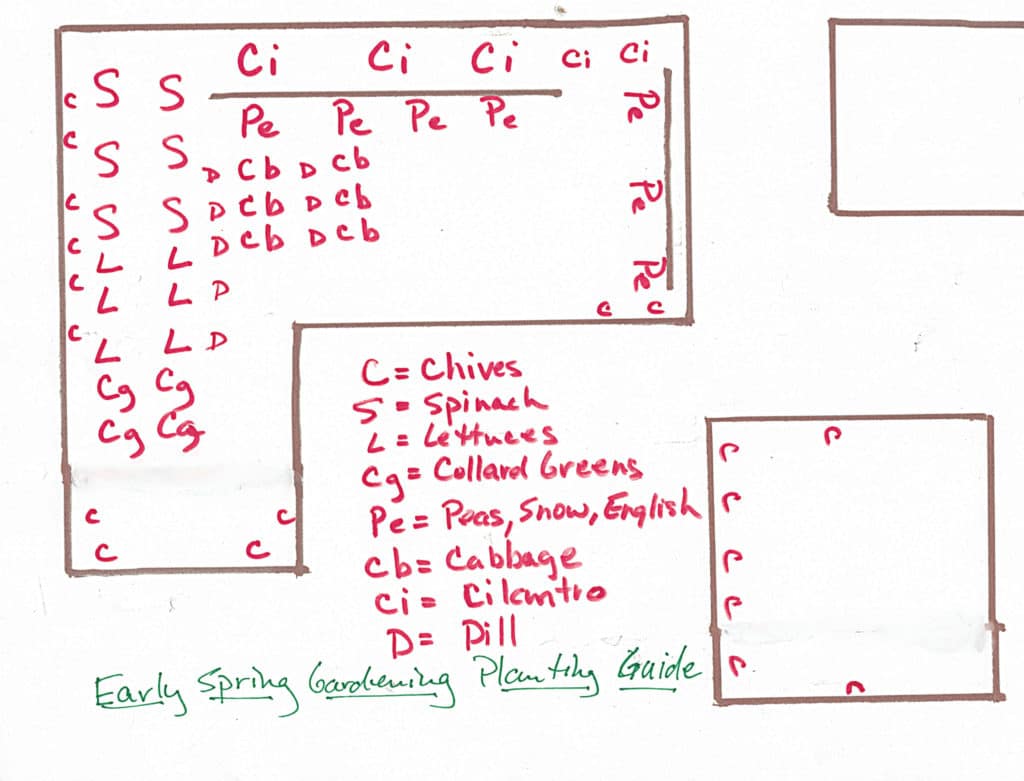 Ci Ci Ci Ci Ci
C S S Pe
Pe Pe Pe Pe
C S S D Cb D Cb
C S S D Cb D Cb Pe
C L L D Cb D Cb
C L L D Pe
C C
C L L D
Cg Cg
Cg Cg
C C
C C
C = Chives
S = Spinach
L = Lettuces
Cg = Collard Greens
Pe = Peas, Snow, English
Cb = Cabbage
Ci = Cilantro
D = Dill
Early Spring Gardening Planting Guide
C
C
C
C
C
C
C